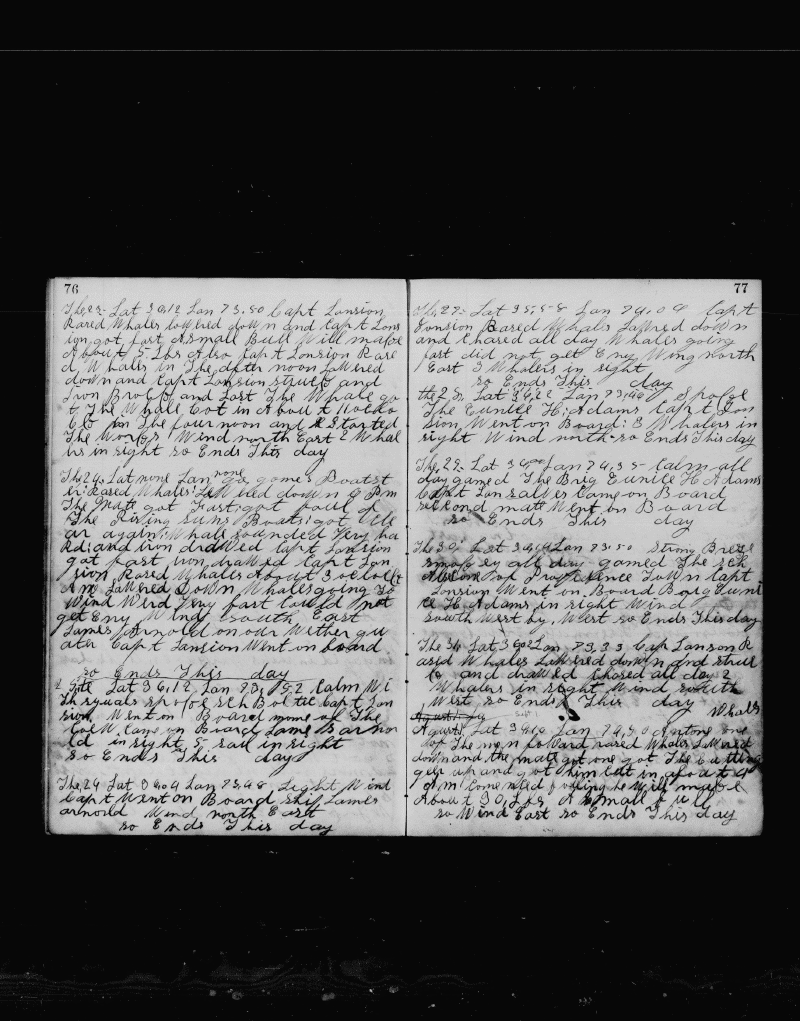 76
The 23 Lat 36,12 Lon 73,50 Capt Lonsion
Rared Whales loWered doWn and Capt Lons
ion got fast a small Bull Will make
About 5 Lbs Also Capt Lonsion Rare
d Whalls in The after noon LoWered
doWn and Capt Lonsion struck and
Iron Brok and Lost The Whale go
t The Whale Cot in About 11 oclo
Ck in The fournoon and Started
The Works Wind north East 2 Whal
ers in sight so Ends This day
The 24 Lat none Lon none gamed Boatst
er: Rared Whales LoWered doWn 6 Pm
The Mate got Fast: got foul of
The Rising suns Boats: got Cle
ar again: Whale sounded Very ha
Rd: and iron draWed Capt Lonsion
got fast iron draWed Capt Lon
sion Rared Whales About 3 oclock
LoWered DoWn Whales going To
Wind Werd Very fast Could not
get Eny Wind south East
James Arnold on our Wether qu
ater Capt Lonsion Went on board
so Ends This day
Lat 36,12 Lon 73, 52 Calm Wi
Th squals spoke sch Capt Lon
sion Went on Board mome of The
Came on Board James arno
ld in sight 5 sail in sight
so Ends This day
The 24 Lat 36,04 Lon 73,48 Light Wind
Capt Went on Board ship James
arnold Wind north East
so Ends This day
77
The 27 Lat 35,58 Lon 74,04 Capt
Lonsion Rared Whals LoWred doWn
and Chared all day Whales going
fast did not get Eny Wing north
East 3 Whalers in sight
so Ends This day
the 28 Lat 36,22 Lon 73,46 Spoke
The Eunice H: Adams Capt Lon
sion Went on Board: 3 Whalers in
sight Wind north so Ends This day
The 29 Lat 36 Lon 74,35 Calm all
day gamed The Brig Eunice H Adams
Capt Came on Board
seccond mate Went on Board
so Ends This day
The 30 Lat 36,14 Lon 73,50 Strong Brees
smokey all day gamed The sch
of Provence ToWn Capt
Lonsion Went on Board Brig Euni
ce H. Adams in sight Wind
south West by West so Ends This day
The 31 Lat 36 Lon 73,33 Cap Lonson R
ared Whales LoWered doWn and struc
k and draWed Chared all day 2
Whalers in sight Wind south
West so Ends This day
Whals
August Lat 36,10 Lon 74,50 Antone one
of The men forWard rared Whales LoWered
down and the mate got one got The Cutting
geer up and got him Cut in about 4
Pm Comented he Will make
About 30 Lbs A small
so Wind East so Ends This day